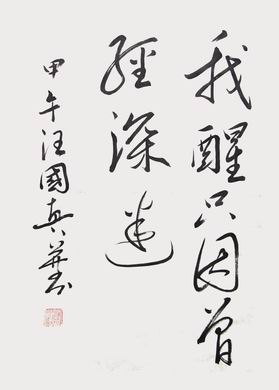 我醒只因曾
經深迷
甲午汪國真并书